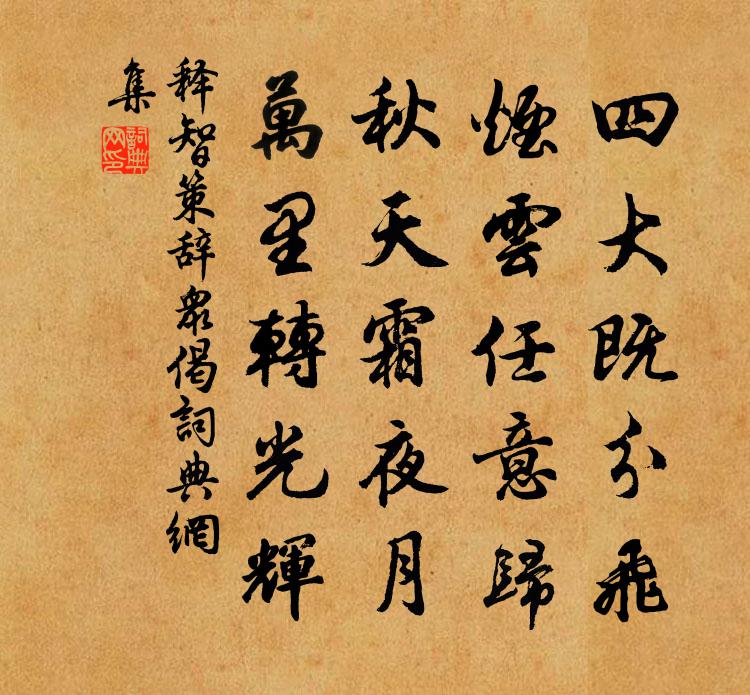 四大既分飛
煙雲任意歸
秋天霜夜月
萬里轉光輝
释智策辞衆偈詞典網
集
詞典网印